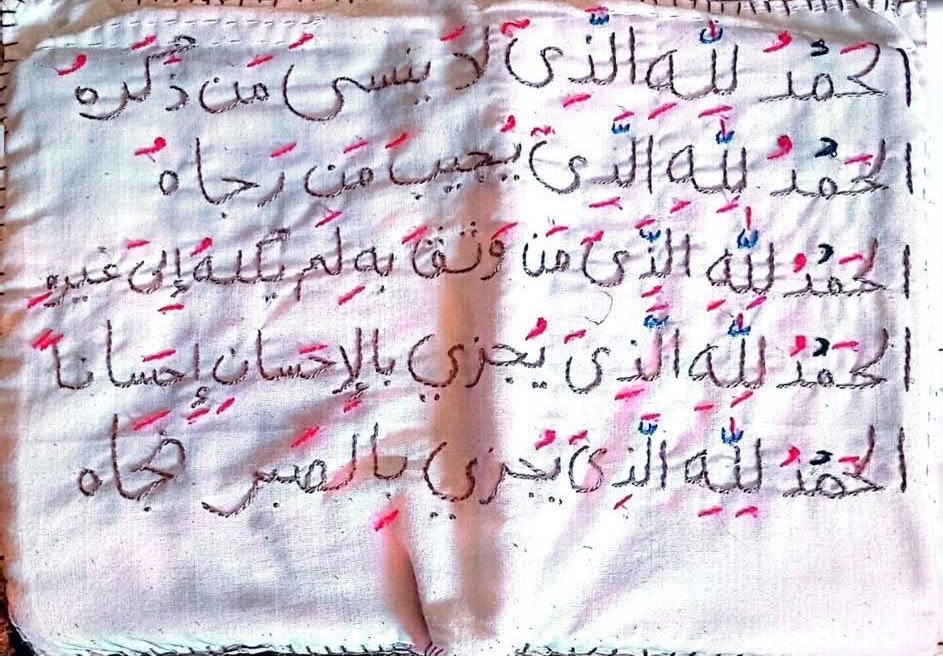 الحَمْدُ لِلَّهِ الَّذِىَ لَا يَنسىَ مَن ذَكَرهُ
الحَمْدُ لِلَّهِ الَّذِىَ يُجيبَ مَن رَجاهُ
الحَمْدُ لِلَّهِ الَّذِىَ مَن وَثقَ بِه لَم يَكلهُ إِلىَ غيرهِ
الحَمْدُ لِلَّهِ الَّذِىَ يُجزي بِالإِحسَانِ إِحسَاناً
الحَمْدُ لِلَّهِ الَّذِىَ يُجزي بِالصَبرِ نجَاه